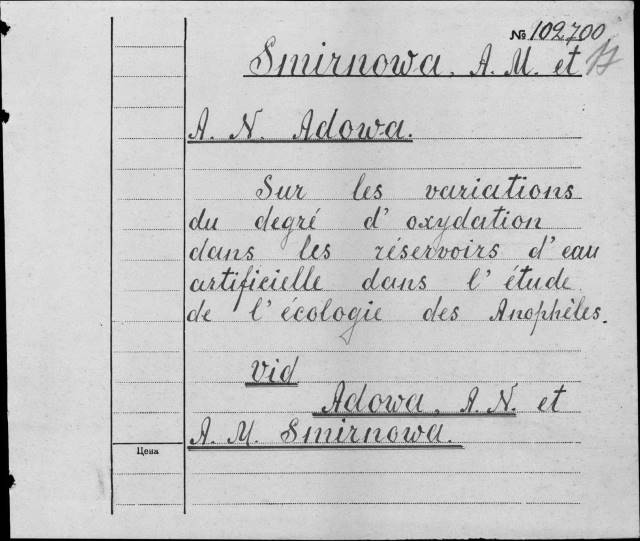 № 102700
Smirnowa, A. M. et
A. N. Adowa.
Sur les variations
du degré d'oxydation
dans les réservoirs d'eau
artificielle dans l'étude
de l'écologie des Anophèles.
vid
Adowa, A. N. et
A. M. Smirnowa.
Цена